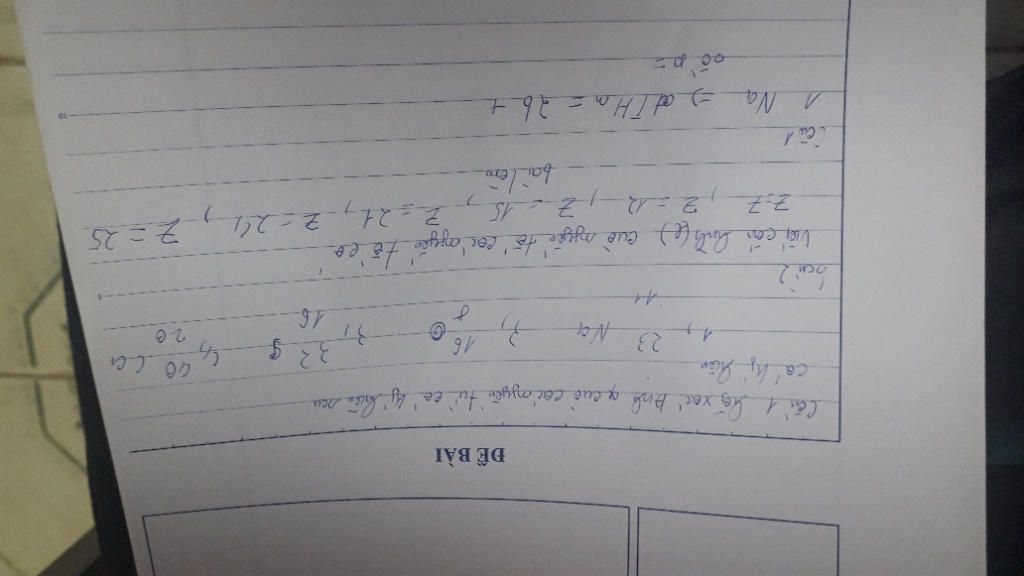 ĐỀ BÀI
Câu 1 hãy xác định q của các nguyên tử có ký hiệu sau
có ký hiệu
1, 23 Na 2, 16 O 3, 32 S 4, 40 Ca
11 8 16 20
câu 2
Viết cấu hình (e) của nguyên tố các nguyên tố có
Z=7, Z=12, Z=15, Z=21, Z=24, Z=25
bài làm
Câu 1
1 Na =>
số p =
10
5